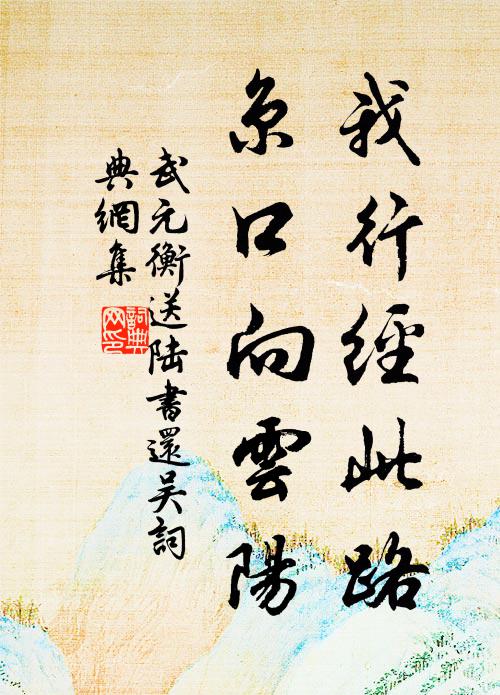 我行經此路
京口向雲陽
武元衡送陆書還吴詞
典網集
詞典
网印